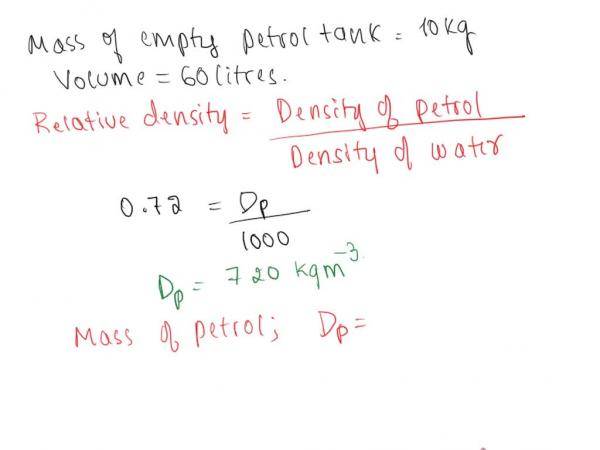 Mass of empty petrol tank = 10kg
Volume = 60litres.
Relative density = Density of petrol
Density of water
0.72 = Dp
1000
Dp = 720 kgm⁻³.
Mass of petrol; Dp =